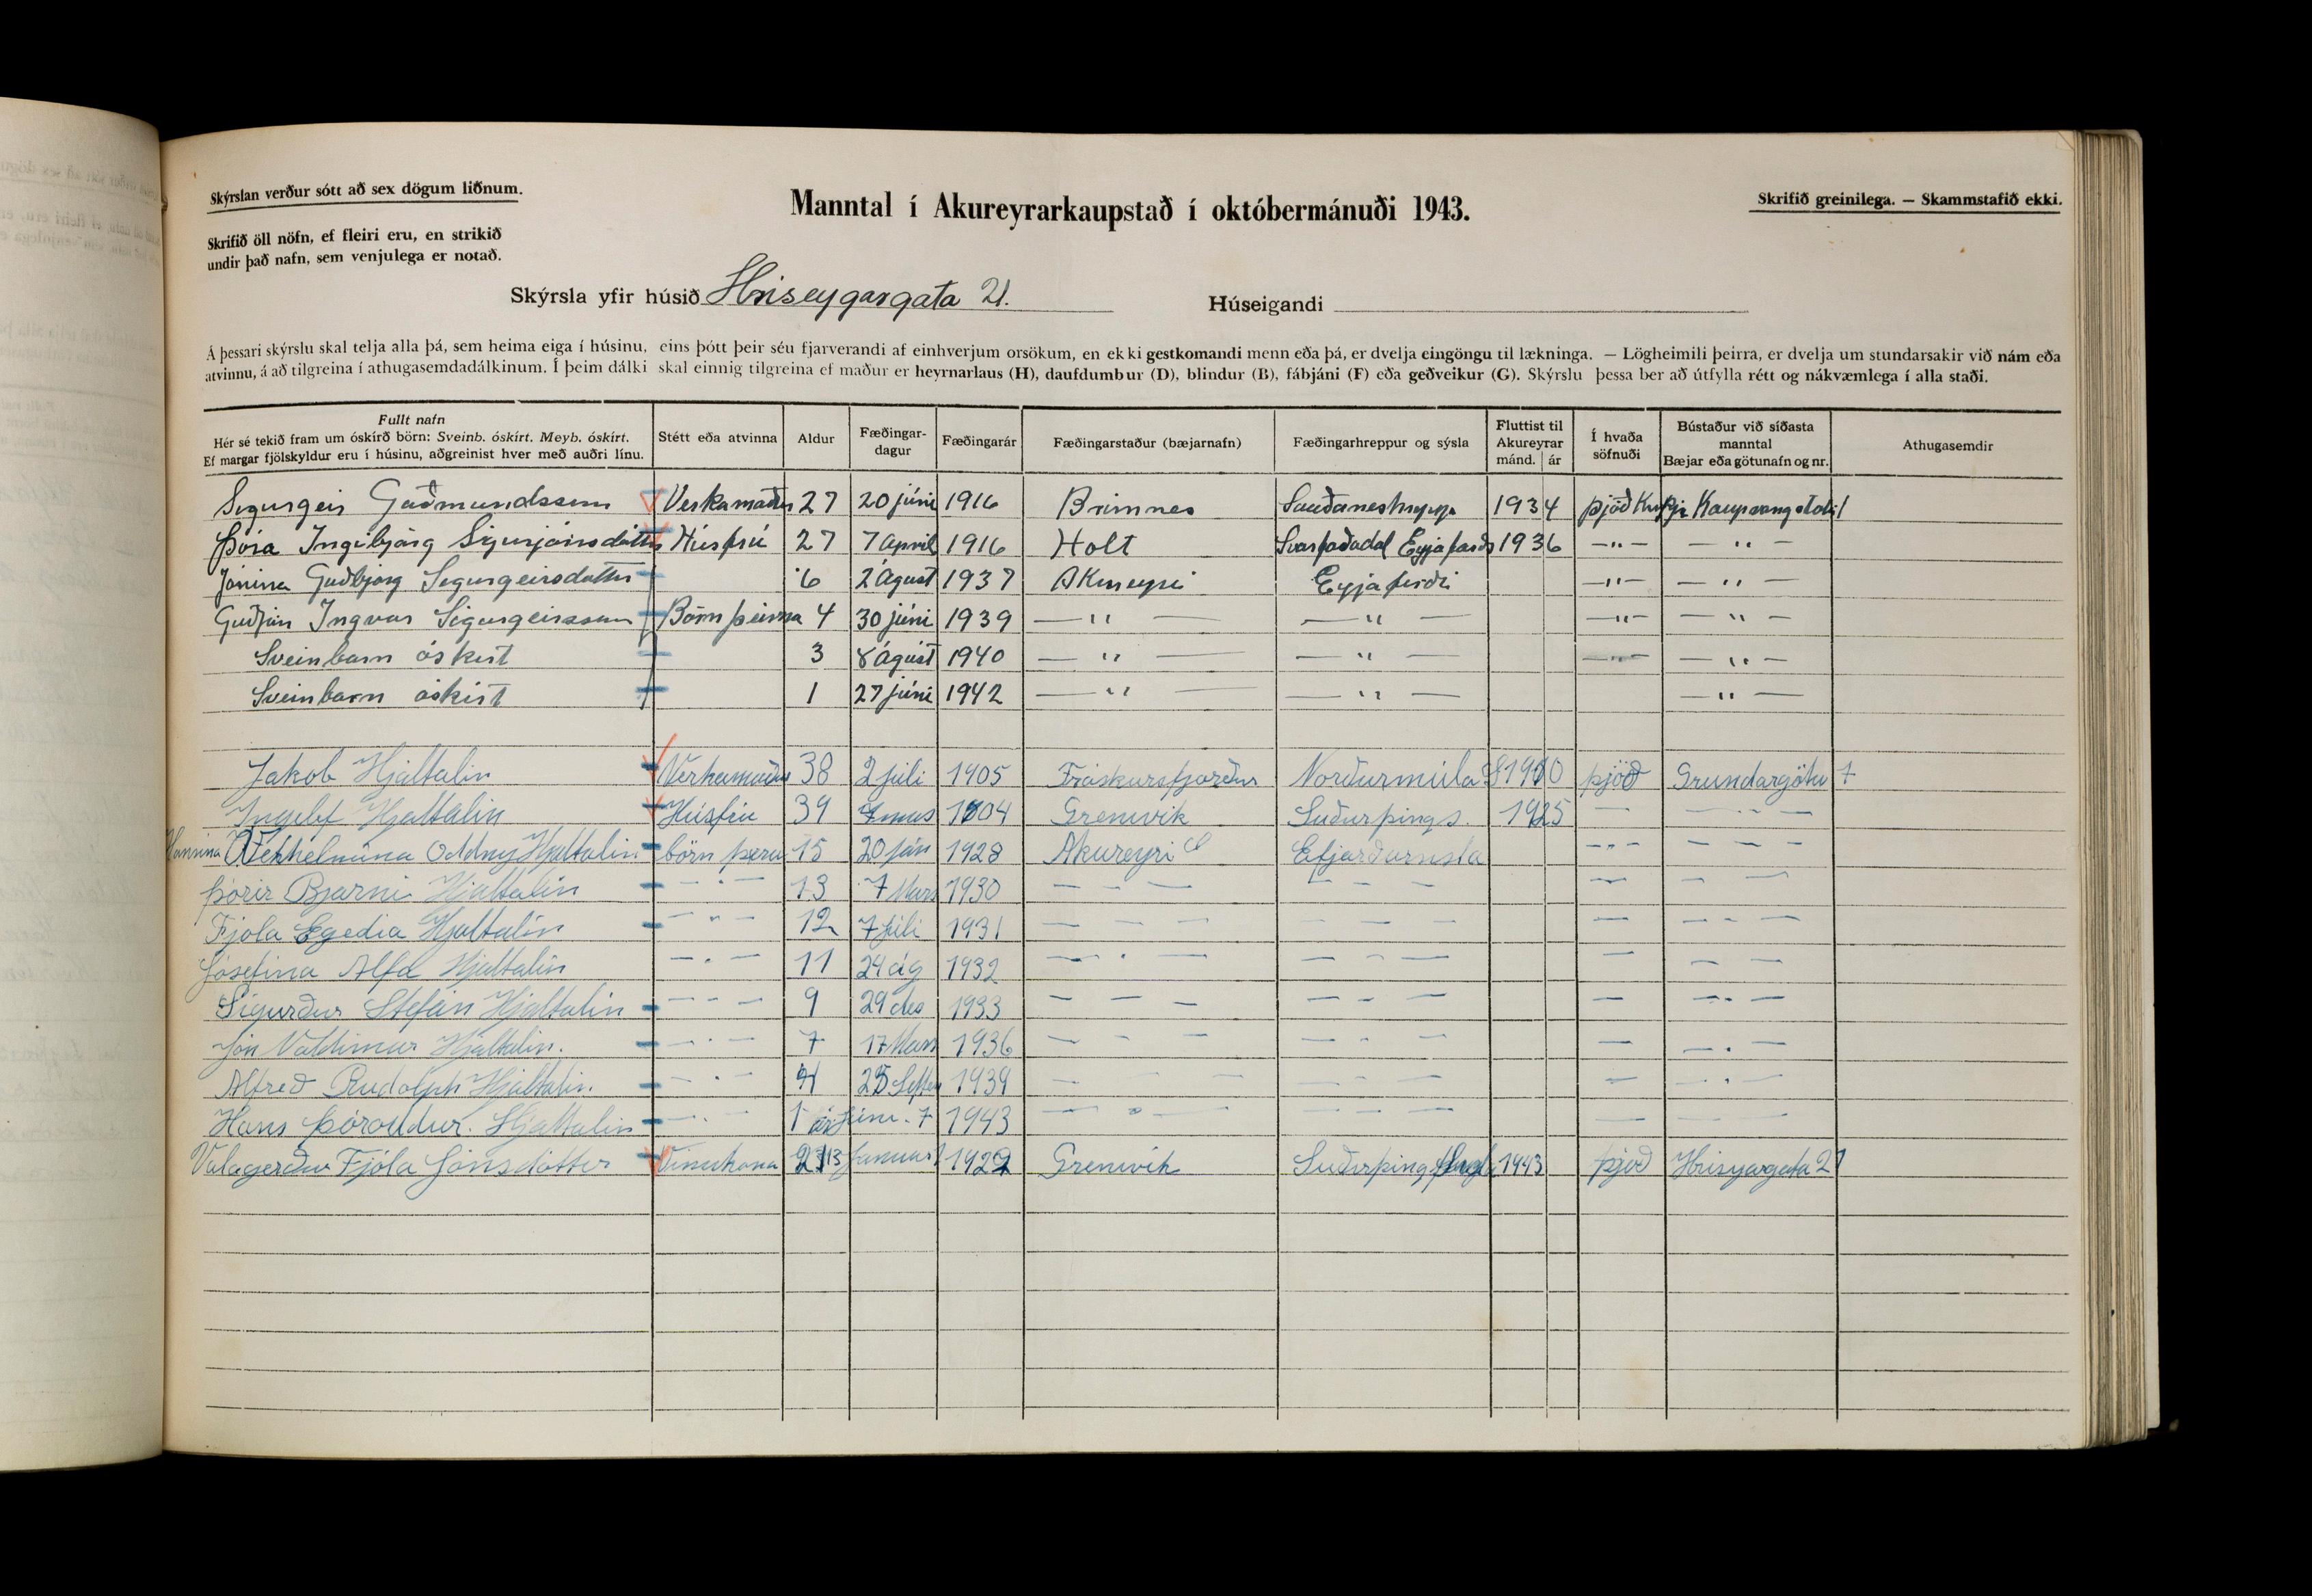 Skýrslan verður sótt að sex dögum liðnum.
Manntal í Akureyrarkaupstað í októbermánuði 1943.
Skrifið greinilega. — Skammstafið ekki.
Skrifið öll nöfn, ef fleiri eru, en strikið
undir það nafn, sem venjulega er notað.
Skýrsla yfir húsið Hriseygargata 21. Húseigandi
Á þessari skýrslu skal telja alla þá, sem heima eiga í húsinu, eins þótt þeir séu fjarverandi af einhverjum orsökum, en ekki gestkomandi menn eða þá, er dvelja eingöngu til lækninga. — Lögheimili þeirra, er dvelja um stundarsakir við nám eða
atvinnu, á að tilgreina í athugasemdadálkinum. Í þeim dálki skal einnig tilgreina ef maður er heyrnarlaus (H), daufdumbur (D), blindur (B), fábjáni (F) eða geðveikur (G). Skýrslu þessa ber að útfylla rétt og nákvæmlega í alla staði.
Fullt nafn
Hér sé tekið fram um óskírð börn: Sveinb. óskírt. Meyb. óskírt.
Ef margar fjölskyldur eru í húsinu, aðgreinist hver með auðri línu.
Stétt eða atvinna
Aldur
Fæðingar-
dagur
Fæðingarár
Fæðingarstaður (bæjarnafn)
Fæðingarhreppur og sýsla
Fluttist til
Akureyrar
mánd. ár
Í hvaða
söfnuði
Bústaður við síðasta
manntal
Bæjar eða götunafn og nr.
Athugasemdir
Sigurgeir Guðmundsson Verkamaður 27 20 júni 1916 Brimnes Sauðaneshrepp 1934 þjóðkirkju Kaupvangstræti 1
Þóra Ingibjörg Sigurjónsdóttir Húsfrú 27 7 apríl 1916 Holt Svarfaðadal Eyjafjarðs 1936 —"— — " —
Jónina Guðbjörg Sigurgeirsdóttir 6 2 Ágúst 1937 Akureyri Eyjafirði —"— — " —
Guðjón Ingvar Sigurgeirsson Börn þeirra 4 30 júni 1939 — " — — " — —"— — " —
Sveinbarn óskírt 3 8 Ágúst 1940 — " — — " — —"— — " —
Sveinbarn óskírt 1 27 júni 1942 — " — — " — — " —
Jakob Hjaltalin Verkamaður 38 2 júli 1905 Fráskursfjörður Norðurmúla þjóð Grundargötu 7
Hjaltalin Húsfrú 39 Grenivik Suðurþings. 1925 — — - —
Vilhelmína Oddny Hjaltalin börn þeru 15 20 ján 1928 Akureyri —"— — — —
Þórir Bjarni Hjaltalin — " — 13 7 Mars 1930 — — — — — — — — —
Fjóla Egedia Hjaltalin — " — 12 7 júli 1931 — — — — — — — — — —
Jósefina Alfa Hjaltalin — " — 11 24 ág 1932 — " — — — — — — —
Sigurður Stefán Hjaltalin — - — 9 29 des 1933 — — — — — — — — " —
Jón Valdimar Hjaltalin. — " — 7 17 Mars 1936 — - — — - — — — " —
Alfreð Rudolph Hjaltalin. — " — 4 25 Septem 1939 — — — — — — — — " —
Hans Þóroddur. Hjaltalin — " — 1 ár júni. 7 1943 — " — — — — — —
Valagerður Fjóla Jónsdóttir Vinukona 21 13 Januar 1922 Grenivik Suðurþing 1943 þjóð Hriseyargata 21